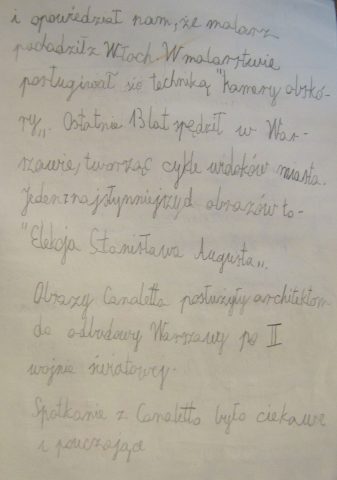 i opowiedział nam, że malarz
pochodził z Włoch. W malarstwie
posługiwał się techniką "kamery obsku-
ry„. Ostatnie 13 lat spędził w War-
szawie, tworząc cykle widoków miasta.
Jeden z najsłynniejszych obrazów to-
"Elekcja Stanisława Augusta„.
Obrazy Canaletta posłużyły architektom
do odbudowy Warszawy po II
wojnie światowej.
Spotkanie z Canaletto było ciekawe
i pouczające